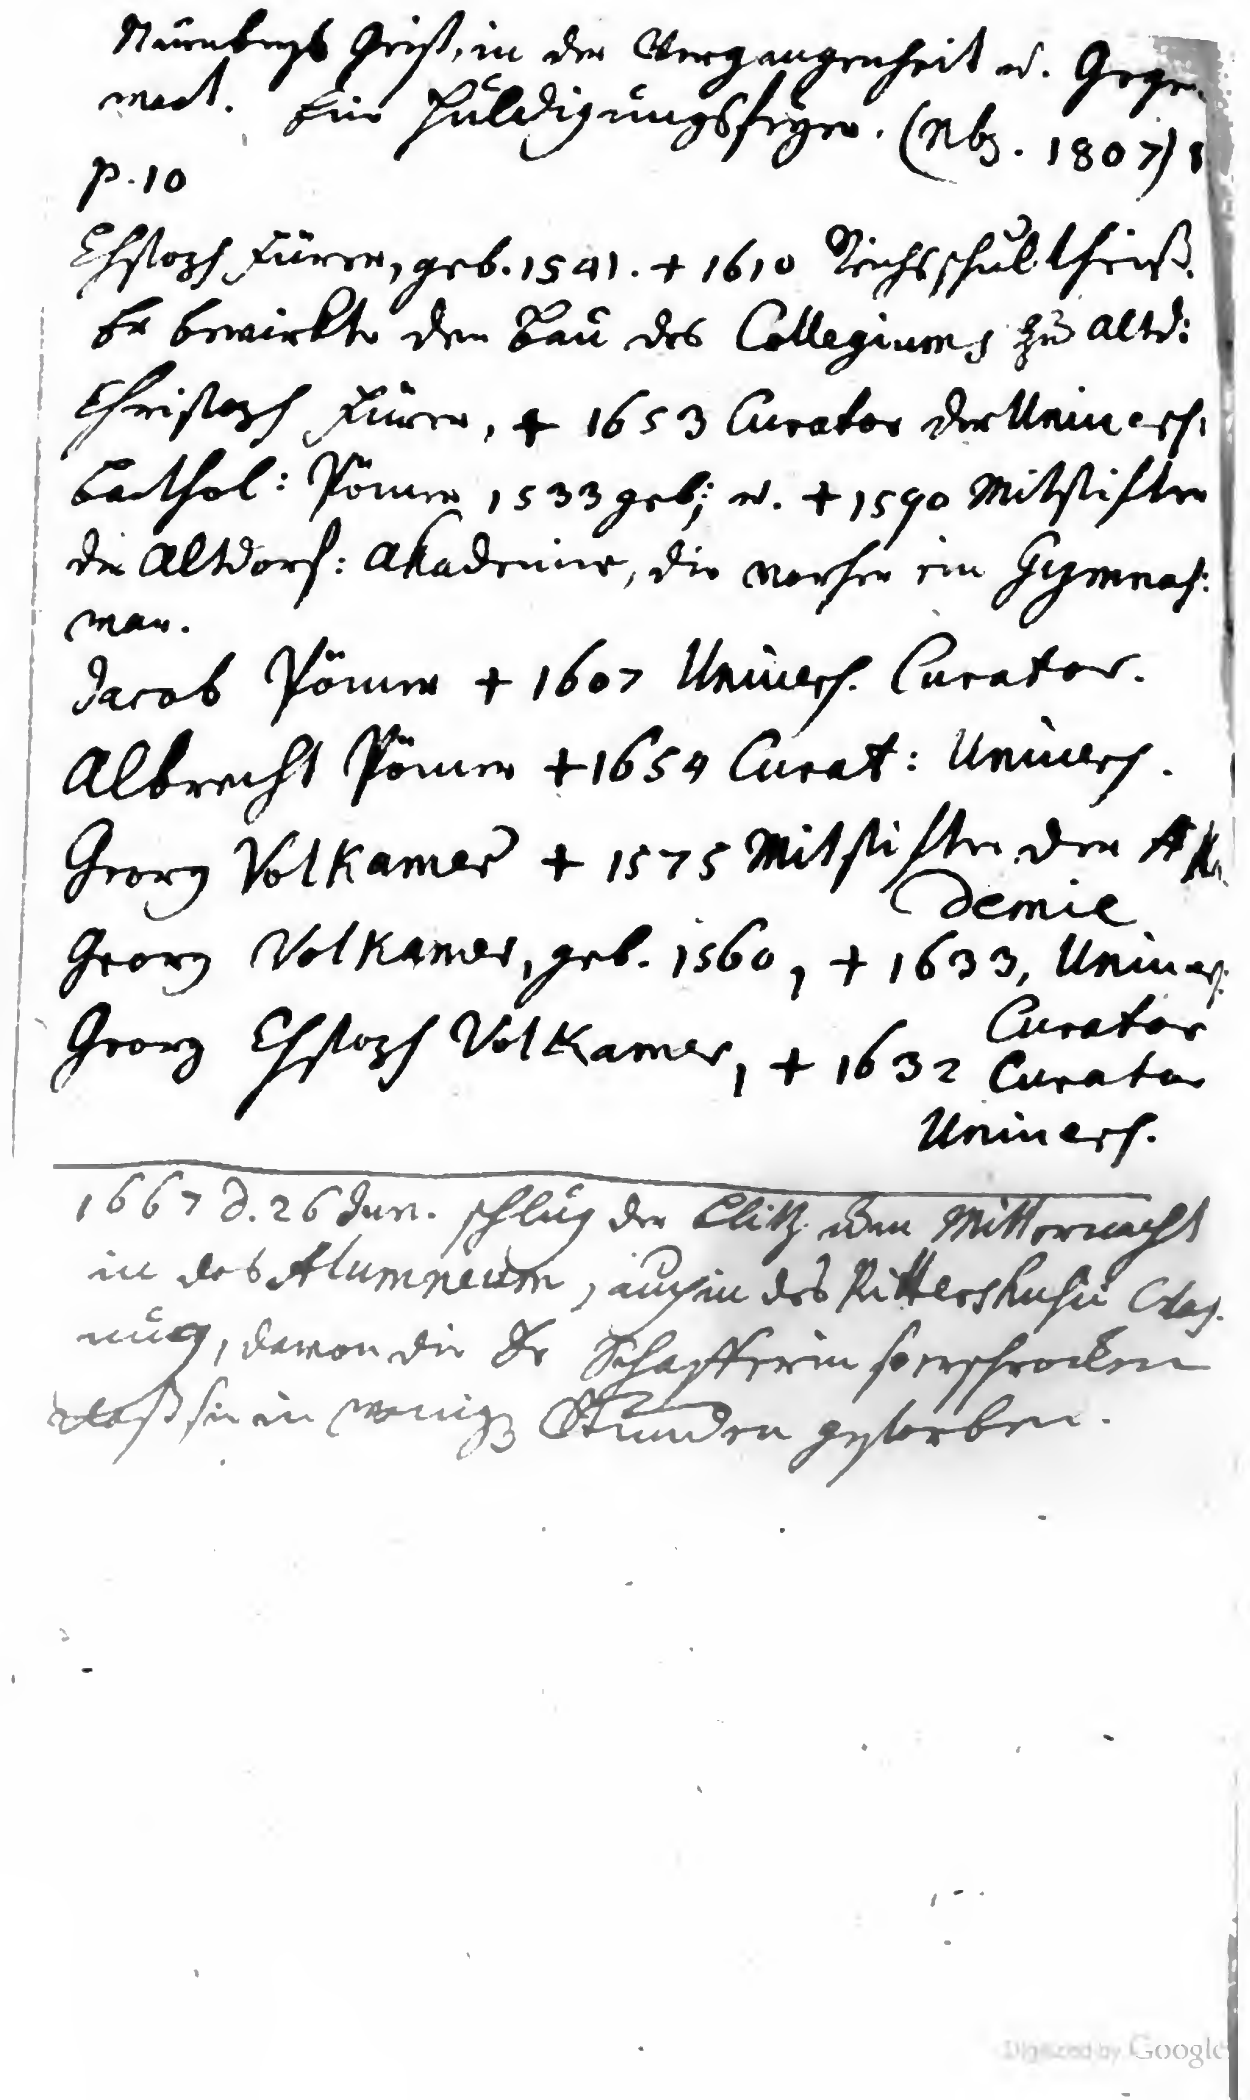 Nürnbergs Geist, in der Vergangenheit u. Gege-
wart. Ein Huldigungsfeyer. (Nbg. 1807) 8
p. 10
Chstoph Fürer, geb. 1541. + 1610 Reichsschultheiß.
Er bewirkte den Bau des Collegiums zu Altd:
Christoph Fürer, + 1653 Curator der Univers:
Barthol: Pömer 1533 geb; u. + 1590 Mitstifter
der Altdorf: Akademie, die vorher ein Gymnas:
war.
Jacob Pömer + 1607 Univers. Curator.
Albrecht Pömer + 1654 Curat: Univers.
Georg Volkamer + 1575 Mitstifter der Aka
demie
Georg Volkamer, geb. 1560, + 1633, Univers.
Curator
Georg Chstoph Volkamer, + 1632 Curator
Univers.
1667 d. 26 Jun. schlug der Blitz um Mitternacht
in das Alumneum, auch in des Rittershusii
davon die Fr Schafferin so erschrocken
daß sie in wenig Stunden gestorben.
Digitized by Google